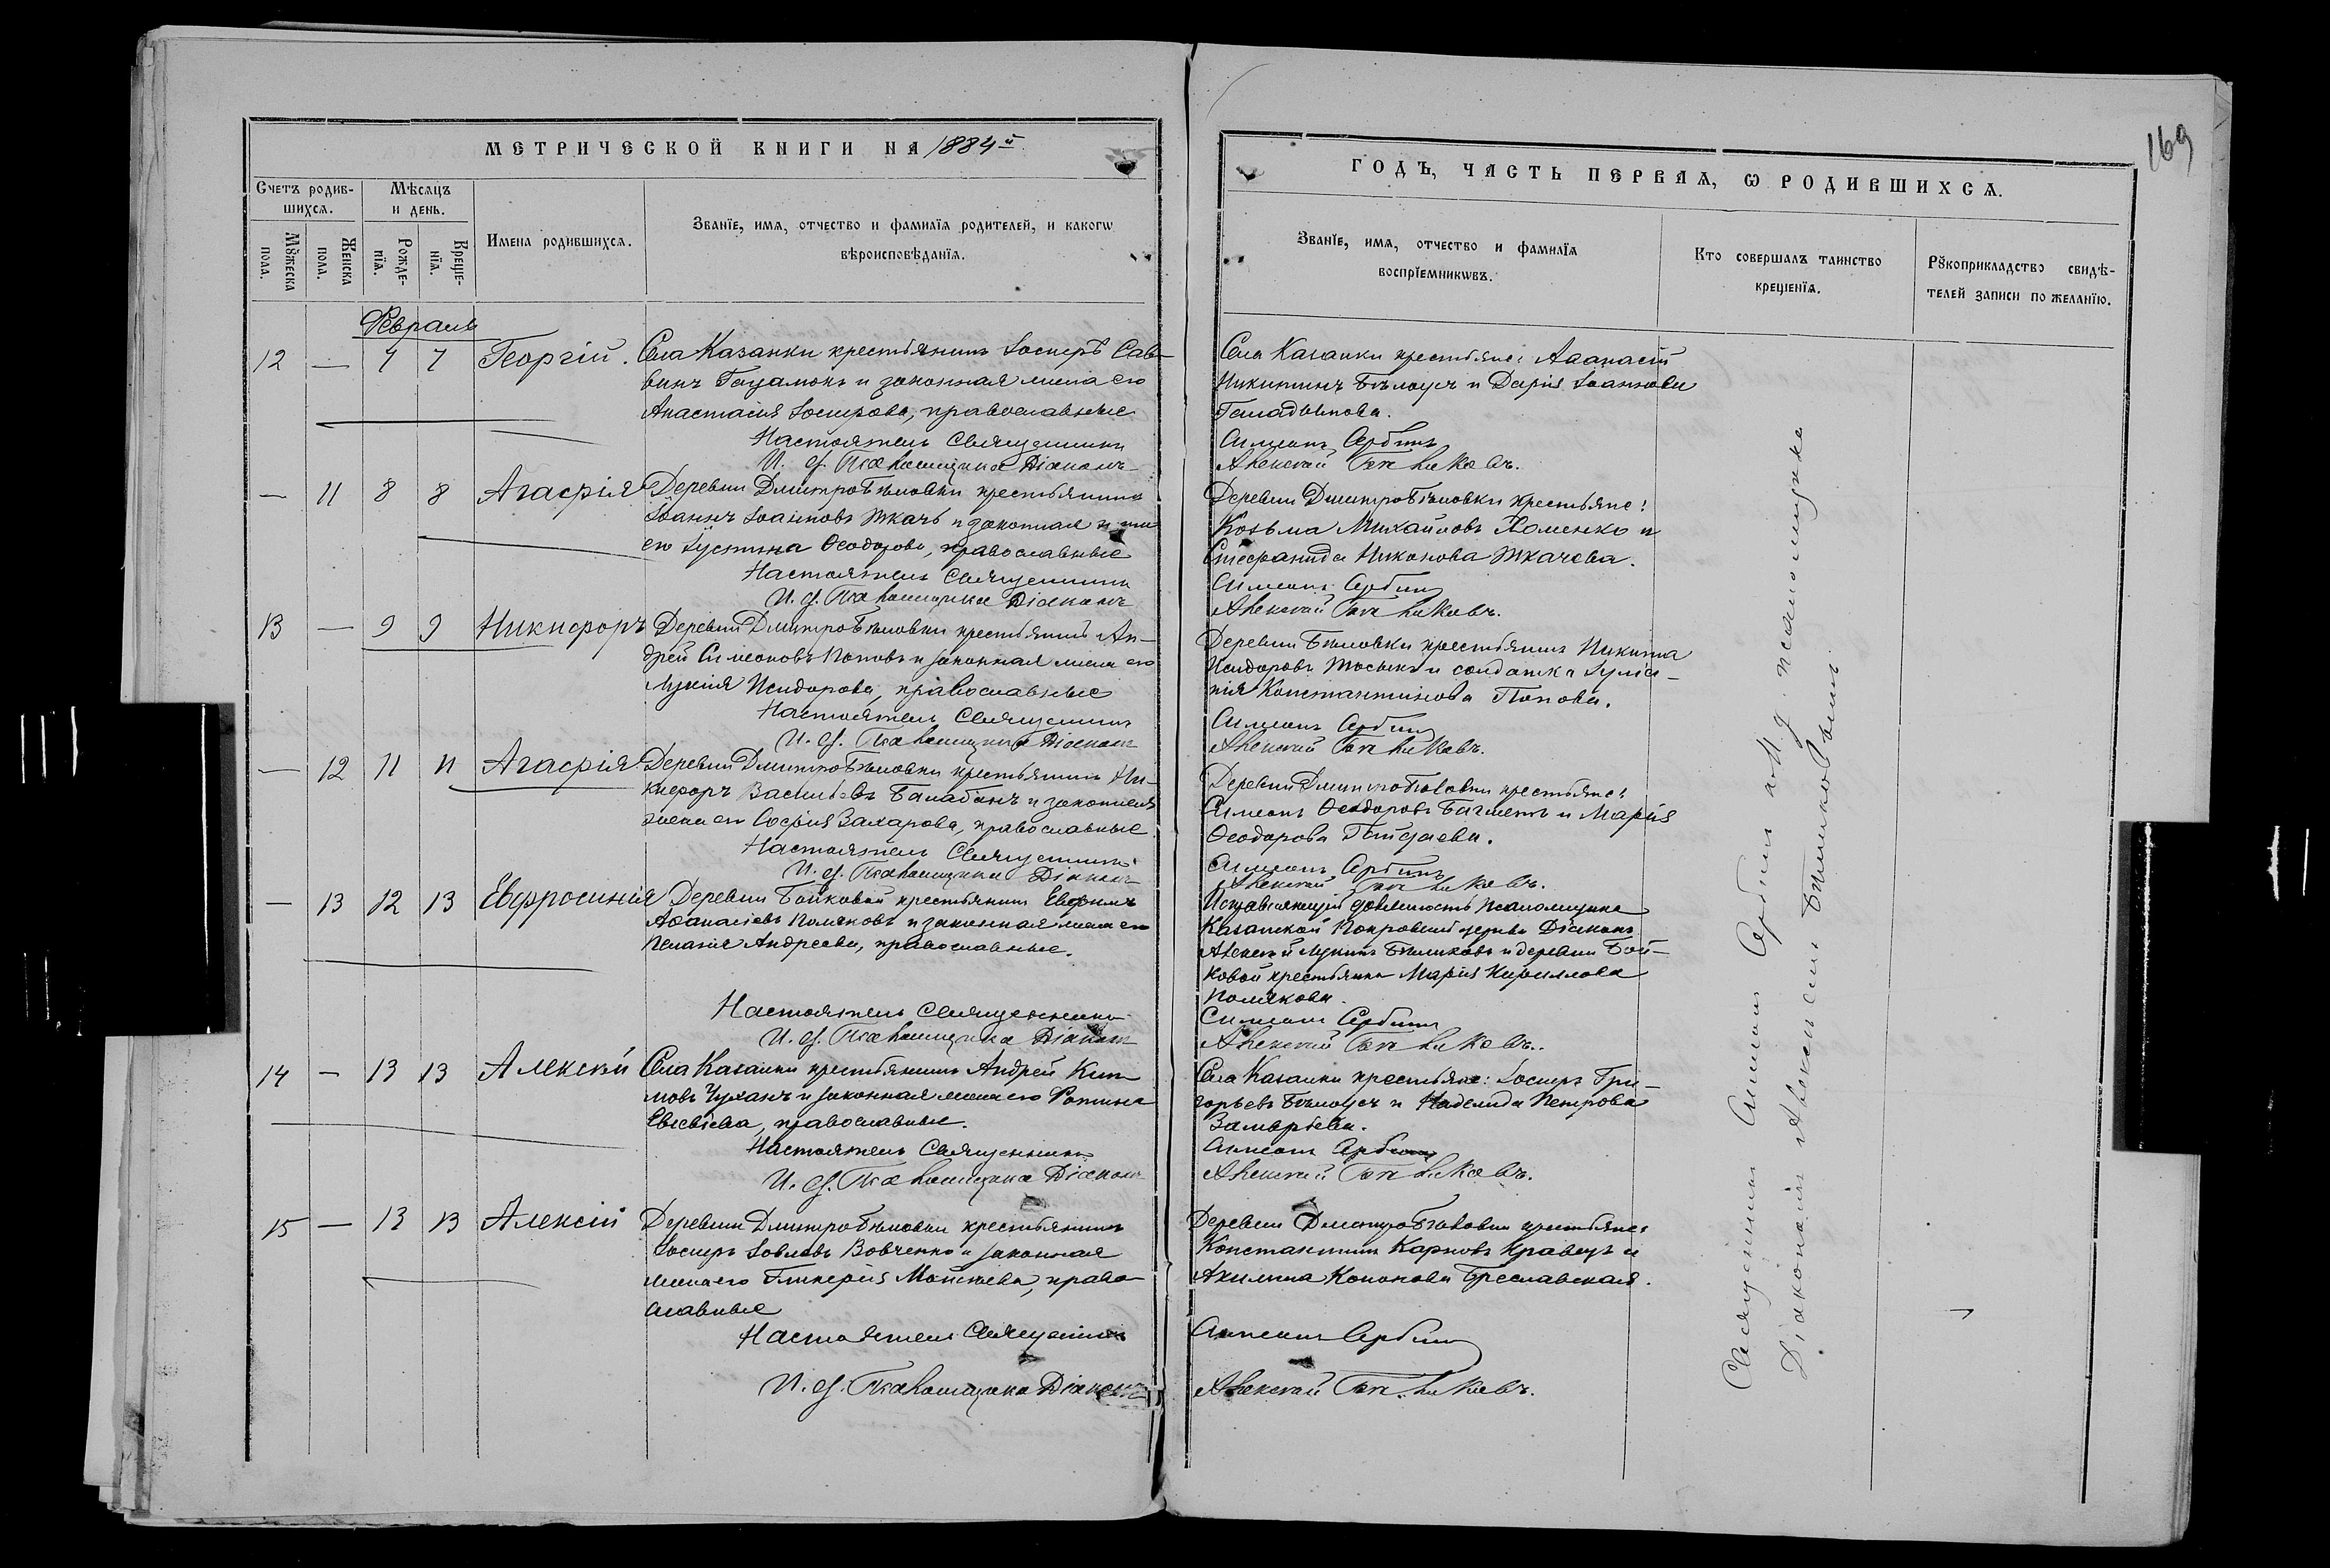 МЕТРИЧЕСКОЙ КНИГИ НА 1884й
ГОДЪ, ЧАСТЬ ПЕРВАЯ, Ѡ РОДИВШИХСѦ.
169
Счетъ родив-
шихсѧ.
Мѣсѧцъ
и день.
Мꙋжеска
пола.
Женска
пола.
Рожде-
нїѧ.
Креще-
нїѧ.
Имена родившихсѧ.
Званїе, имѧ, отчество и фамилїѧ родителей, и какогѡ
вѣроисповѣданїѧ.
Званїе, имѧ, отчество и фамилїѧ
воспрїемникѡвъ.
Кто совершалъ таинство
крещенїѧ.
Рꙋкоприкладство свидѣ-
телей записи по желанїю.
Февраль
12 — 7 7 Георгій.
Села Казанки крестьянинъ Іосифъ Сав-
винъ и законная жена его
Анастасія Іосифова, православные
Настоятель Священникъ
И. д. Псаломщика Діаконъ
Села Казанки крестьяне: Аѳанасій
Никитинъ Бѣлоусъ и Дарія Іоаннова
Симеонъ Сербинъ
Алексѣй Бѣликовъ.
— 11 8 8 Агафія
Деревни ДмитроБѣловки крестьянинъ
Іоаннъ Іоанновъ Ткачъ и законная жена
его Іустина Ѳеодорова, православные
Настоятель Священникъ
И. д. Псаломщика Діаконъ
Деревни ДмитроБѣловки крестьяне:
Козьма Михайловъ Хоменко и
Стефанида Никонова Ткачева.
Симеонъ Сербинъ
Алексѣй Бѣликовъ.
13 — 9 9 Никифоръ
Деревни ДмитроБѣловки крестьянинъ Ан-
дрей Симеоновъ Поповъ и законная жена его
Лукія Исидорова, православные
Настоятель Священникъ
И. д. Псаломщика Діаконъ
Деревни Бѣловки крестьянинъ Никита
Исидоровъ и солдатка Іуліа-
нія Константинова Попова.
Симеонъ Сербинъ
Алексѣй Бѣликовъ.
— 12 11 11 Агафія
Деревни ДмитроБѣловки крестьянинъ Ни-
кифоръ Васильевъ Балабанъ и законная
жена его Софія Захарова, православные
Настоятель Священникъ
И. д. Псаломщика Діаконъ
Деревни ДмитроБѣловки крестьяне:
Симеонъ Ѳеодоровъ и Марія
Ѳеодорова
Симеонъ Сербинъ
Алексѣй Бѣликовъ.
— 13 12 13 Евфросинія
Деревни Бойковой крестьянинъ Евфимъ
Аѳанасіевъ Поляковъ и законная жена его
Пелагія Андреева, православные.
Настоятель Священникъ
И. д. Псаломщика Діаконъ
Исправляющій должность Псаломщика
Казанской Покровской церкви Діаконъ
Алексѣй Лукинъ Бѣликовъ и деревни Бой-
ковой крестьянка Марія Кириллова
Полякова.
Симеонъ Сербинъ
Алексѣй Бѣликовъ.
14 — 13 13 Алексѣй
Села Казанки крестьянинъ Андрей Кли-
мовъ Чуханъ и законная жена его Фотина
Евсевіева, православные.
Настоятель Священникъ
И. д. Псаломщика Діаконъ
Села Казанки крестьяне: Іосифъ Гри-
горьевъ Бѣлоусъ и Надежда Петрова
Симеонъ Сербинъ
Алексѣй Бѣликовъ.
15 — 13 13 Алексій
Деревни ДмитроБѣловки крестьянинъ
Іосифъ Вовченко и законная
жена его Гликерія Моисеева, право-
славные
Настоятель Священникъ
И. д. Псаломщика Діаконъ
Деревни ДмитроБѣловки крестьяне:
Константинъ Карповъ Кравецъ и
Акилина Кононова Бреславская.
Симеонъ Сербинъ
Алексѣй Бѣликовъ.
Священникъ Симеонъ Сербинъ съ и. д. псаломщика
Діакономъ Алексѣемъ Бѣликовымъ